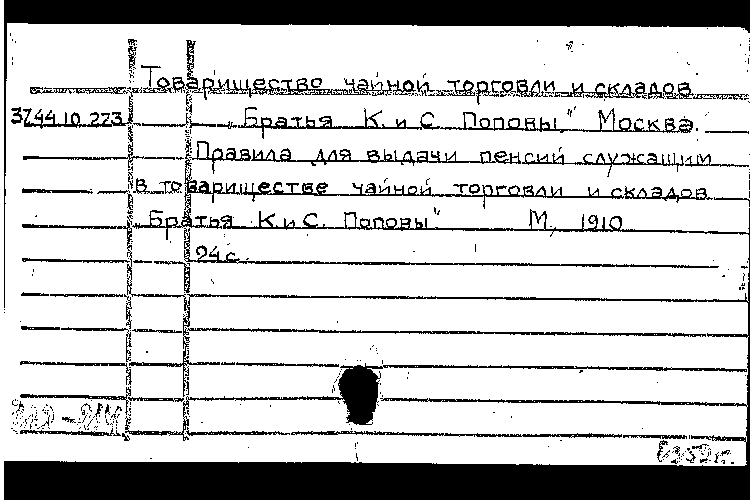 Товарищество чайной торговли и складов
37.44.10.223 „Братья К. и С. Поповы," Москва.
Правила для выдачи пенсий служащим
в товариществе чайной торговли и складов
„Братья К. и С. Поповы" М, 1910
24 с.